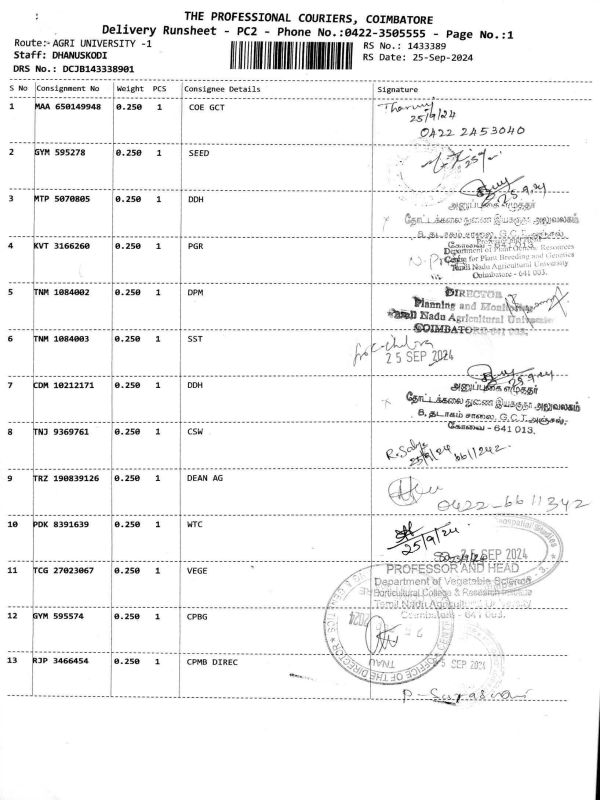 THE PROFESSIONAL COURIERS, COIMBATORE
Delivery Runsheet - PC2 - Phone No.:0422-3505555 - Page No.:1
Route:- AGRI UNIVERSITY -1
RS No.: 1433389
Staff: DHANUSKODI
RS Date: 25-Sep-2024
DRS No.: DCJB143338901
S No Consignment No Weight PCS Consignee Details Signature
1 MAA 650149948 0.250 1 COE GCT
25/9/24
0422 2453040
2 GYM 595278 0.250 1 SEED
25.9.24
3 MTP 5070805 0.250 1 DDH
அனுப்புகை எழுத்தர்
தோட்டக்கலை துணை இயக்குநர் அலுவலகம்
8, தடாகம் சாலை, G.C.T. அஞ்சல்,
கோவை - 641 013.
4 KVT 3166260 0.250 1 PGR
Professor and Head
Department of Plant Genetic Resources
Centre for Plant Breeding and Genetics
Tamil Nadu Agricultural University
Coimbatore - 641 003.
5 TNM 1084002 0.250 1 DPM
DIRECTOR
Planning and Monitoring
Tamil Nadu Agricultural University
COIMBATORE-641 003.
6 TNM 1084003 0.250 1 SST
25 SEP 2024
7 CDM 10212171 0.250 1 DDH
25.9.24
அனுப்புகை எழுத்தர்
தோட்டக்கலை துணை இயக்குநர் அலுவலகம்
8, தடாகம் சாலை, G.C.T. அஞ்சல்,
கோவை - 641 013.
8 TNJ 9369761 0.250 1 CSW
25/9/24 6611242
9 TRZ 190839126 0.250 1 DEAN AG
0422-6611342
10 PDK 8391639 0.250 1 WTC
25/9/24
25 SEP 2024
11 TCG 27023067 0.250 1 VEGE
PROFESSOR AND HEAD
Department of Vegetable Science
Horticultural College & Research Institute
Tamil Nadu Agricultural University
Coimbatore - 641 003.
12 GYM 595574 0.250 1 CPBG
13 RJP 3466454 0.250 1 CPMB DIREC
OFFICE OF THE DIRECTOR
TNAU
25 SEP 2024